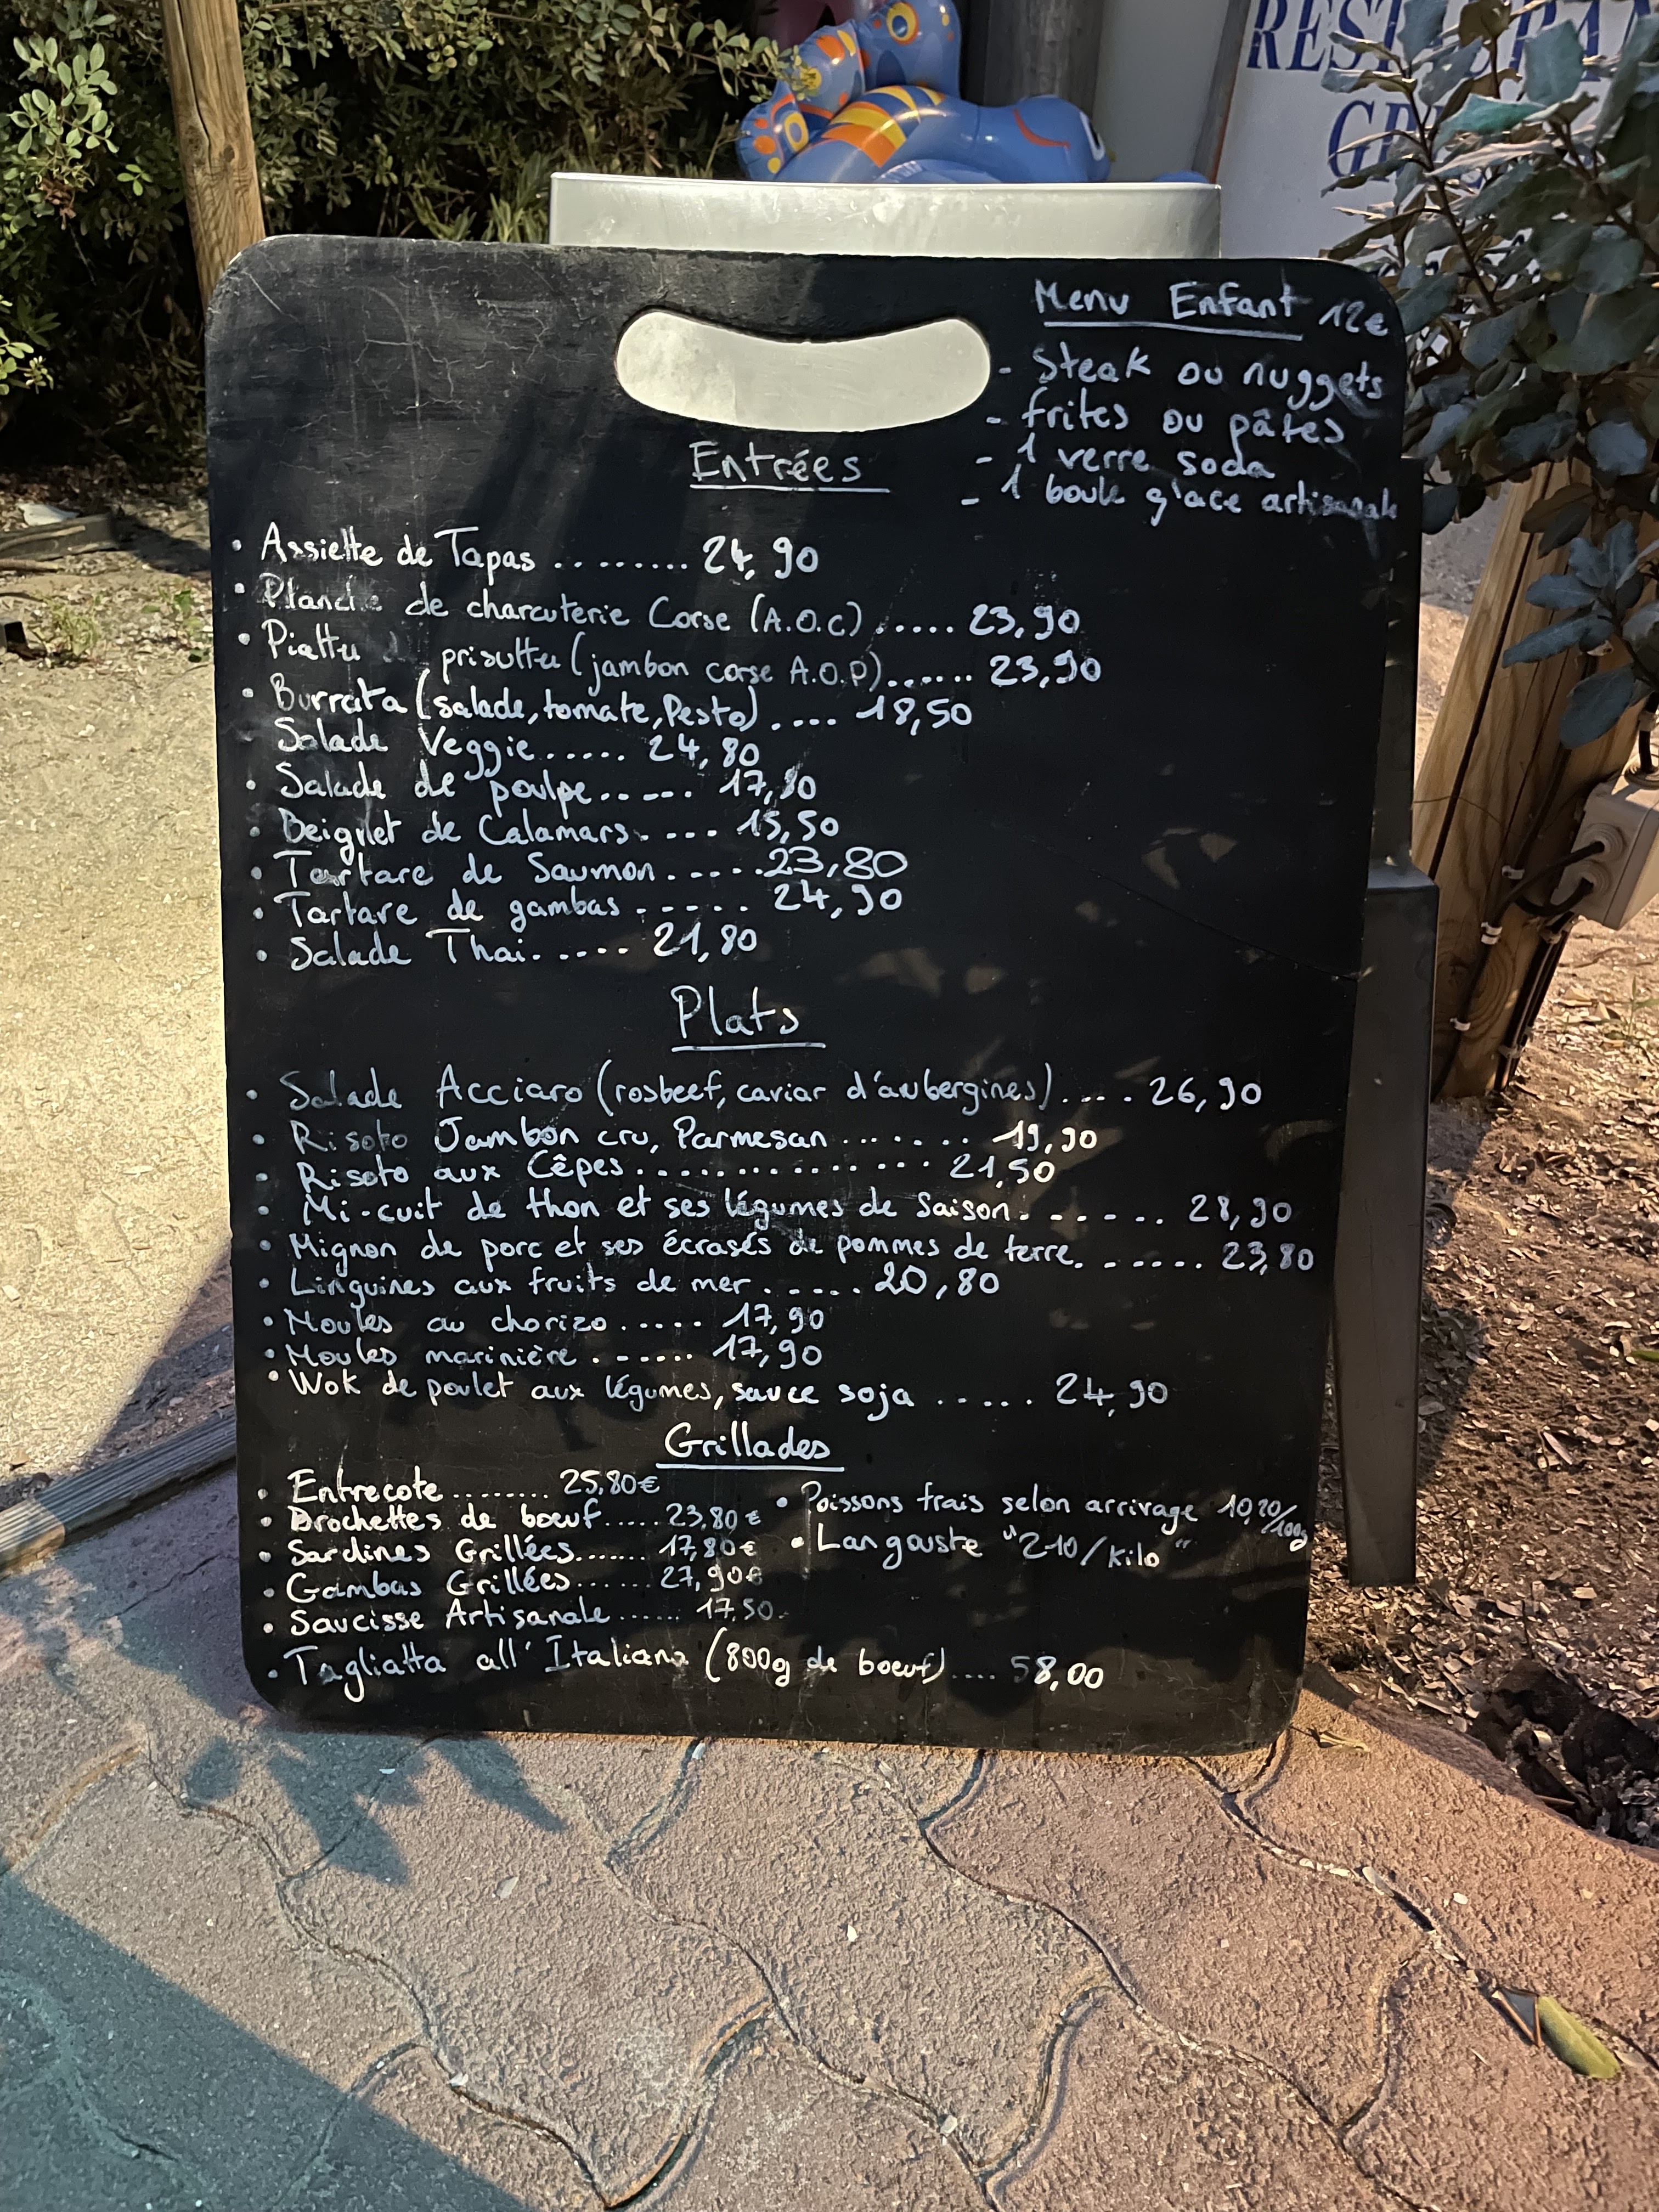 RESTAURAN
Menu Enfant 12€
- Steak ou nuggets
- frites ou pâtes
- 1 verre soda
- 1 boule glace artisanale
Entrées
• Assiette de Tapas ........ 24,90
• Planche de charcuterie Corse (A.O.C) ..... 23,90
• Piattu prisuttu (jambon corse A.O.P) ...... 23,90
• Burrata (salade, tomate, Pesto) .... 18,50
Salade Veggie ..... 24,80
• Salade de poulpe ..... 17,80
• Beignet de Calamars .... 15,50
• Tartare de Saumon ..... 23,80
• Tartare de gambas ..... 24,90
• Salade Thai ..... 21,80
Plats
• Salade Acciaro (rosbeef, caviar d'aubergines) .... 26,90
• Risoto Jambon cru, Parmesan ....... 19,90
• Risoto aux Cêpes ............... 21,50
• Mi-cuit de thon et ses légumes de Saison ...... 28,90
• Mignon de porc et ses écrasés de pommes de terre ...... 23,80
• Linguines aux fruits de mer ..... 20,80
• Moules au chorizo ..... 17,90
• Moules marinière ...... 17,90
• Wok de poulet aux légumes, sauce soja ..... 24,90
Grillades
• Entrecote ........ 25,80€
• Brochettes de bœuf ..... 23,80€
• Sardines Grillées ....... 17,80€
• Gambas Grillées ...... 27,90€
• Saucisse Artisanale ...... 17,50
• Poissons frais selon arrivage 10,20/100g
• Langouste "210/kilo"
• Tagliatta all'Italiana (800g de boeuf) .... 58,00